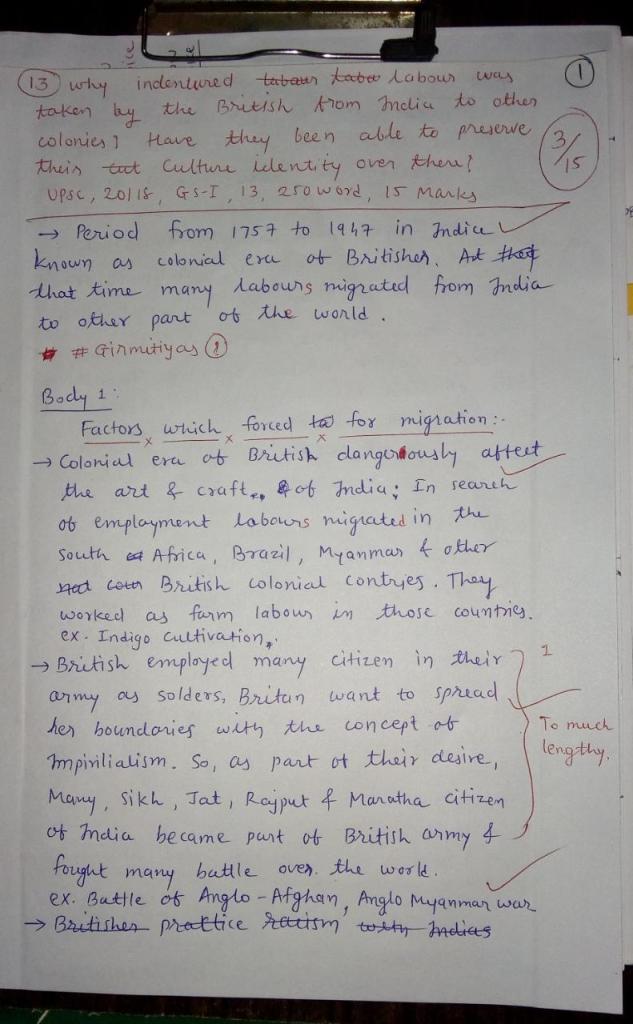 (13) why indentured labaur laba labour was
taken by the British from India to other
colonies? Have they been able to preserve
their cut Culture identity over there?
UPSC, 20118, GS-I, 13, 250 word, 15 Marks
1
3/15
→ Period from 1757 to 1947 in India
known as colonial era of Britisher. At that
that time many labours migrated from India
to other part of the world.
# Girmitiyas
Body 1:
Factors which forced to for migration:-
→ Colonial era of British dangerously affect
the art & craft of India; In search
of employment labours migrated in the
South Africa, Brazil, Myanmar & other
British colonial contries. They
worked as farm labour in those countries.
ex. Indigo cultivation,
→ British employed many citizen in their
army as solders, Britan want to spread
her boundaries with the concept of
Impirilialism. So, as part of their desire,
Many, Sikh, Jat, Rajput & Maratha citizen
of India became part of British army &
fought many battle over the world.
1
To much
lengthy.
ex. Battle of Anglo-Afghan, Anglo Myanmar war
→ Britisher prattice racism with Indias